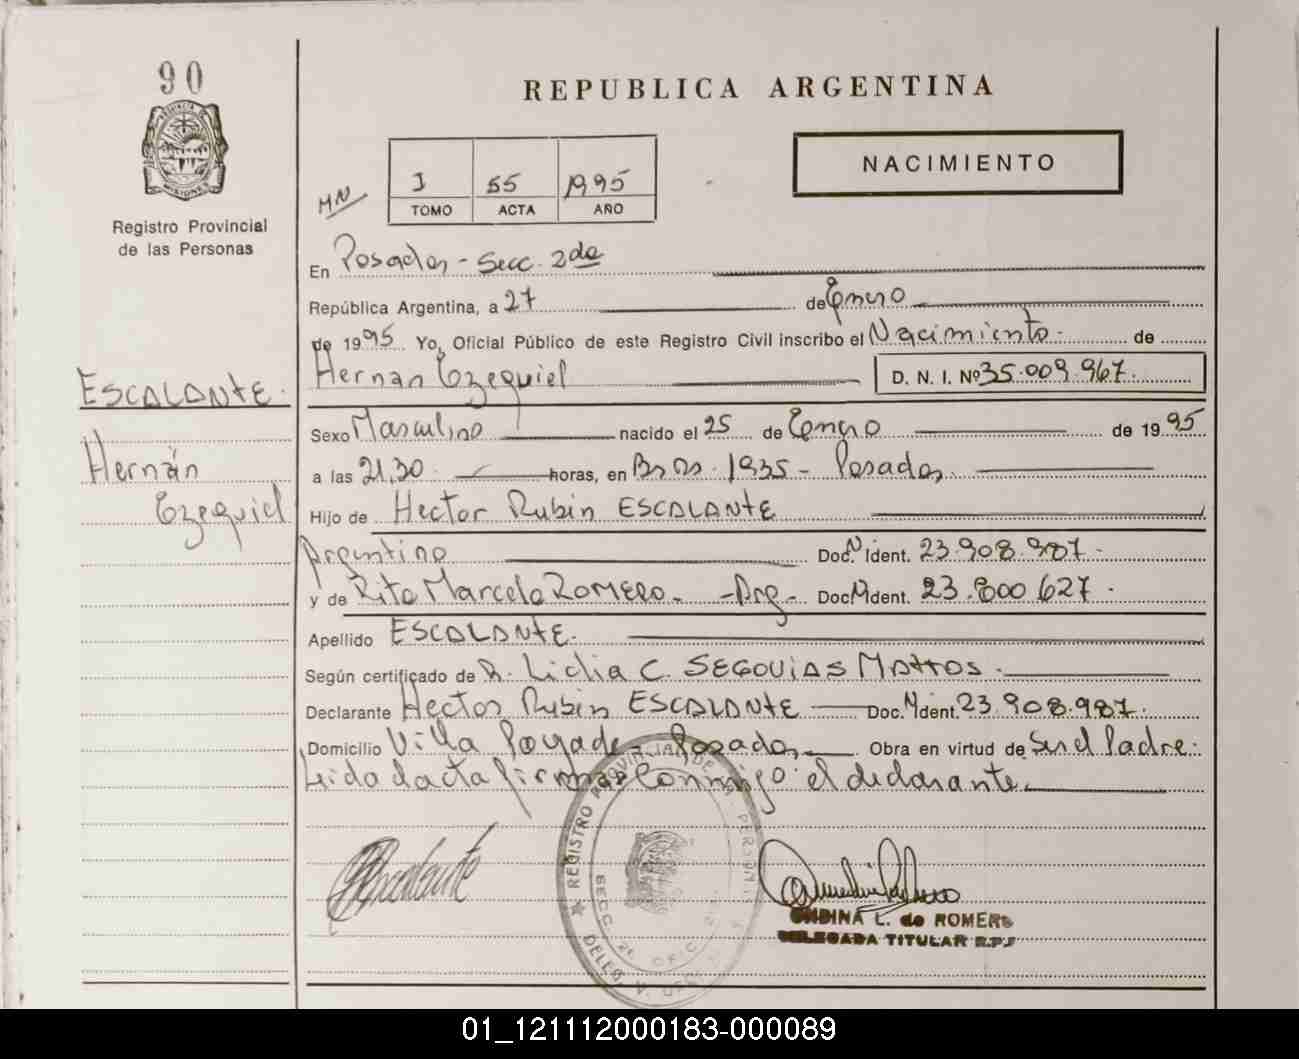 90
REPUBLICA ARGENTINA
NACIMIENTO
MN
I 55 1995
TOMO ACTA AÑO
PROVINCIA DE MISIONES
Registro Provincial
de las Personas
En Posadas - Secc. 2da
República Argentina, a 27 de Enero
de 1995 Yo, Oficial Público de este Registro Civil inscribo el Nacimiento de
Hernan Ezequiel D. N. I. Nº 35.009.967.
ESCALANTE.
Hernán
Ezequiel
Sexo Masculino nacido el 25 de Enero de 1995
a las 21,30 horas, en Bs As. 1935 - Posadas
Hijo de Hector Rubin ESCALANTE
Argentino Doc. N. Ident. 23.908.987.
y de Rita Marcela ROMERO - Arg - Doc. N. Ident. 23.800.627.
Apellido ESCALANTE.
Según certificado de Lidia C. SEGOVIAS MATTOS.
Declarante Hector Rubin ESCALANTE Doc. N. Ident. 23.908.987.
Domicilio Villa Poujade - Posadas Obra en virtud de Ser el Padre.
Leida el acta firma conmigo el declarante.
Escalante
REGISTRO PROVINCIAL DE LAS PERSONAS
SECC. 2a OFIC.
DELEG.
ONDINA L. de ROMERO
DELEGADA TITULAR R.P.J
01_121112000183-000089